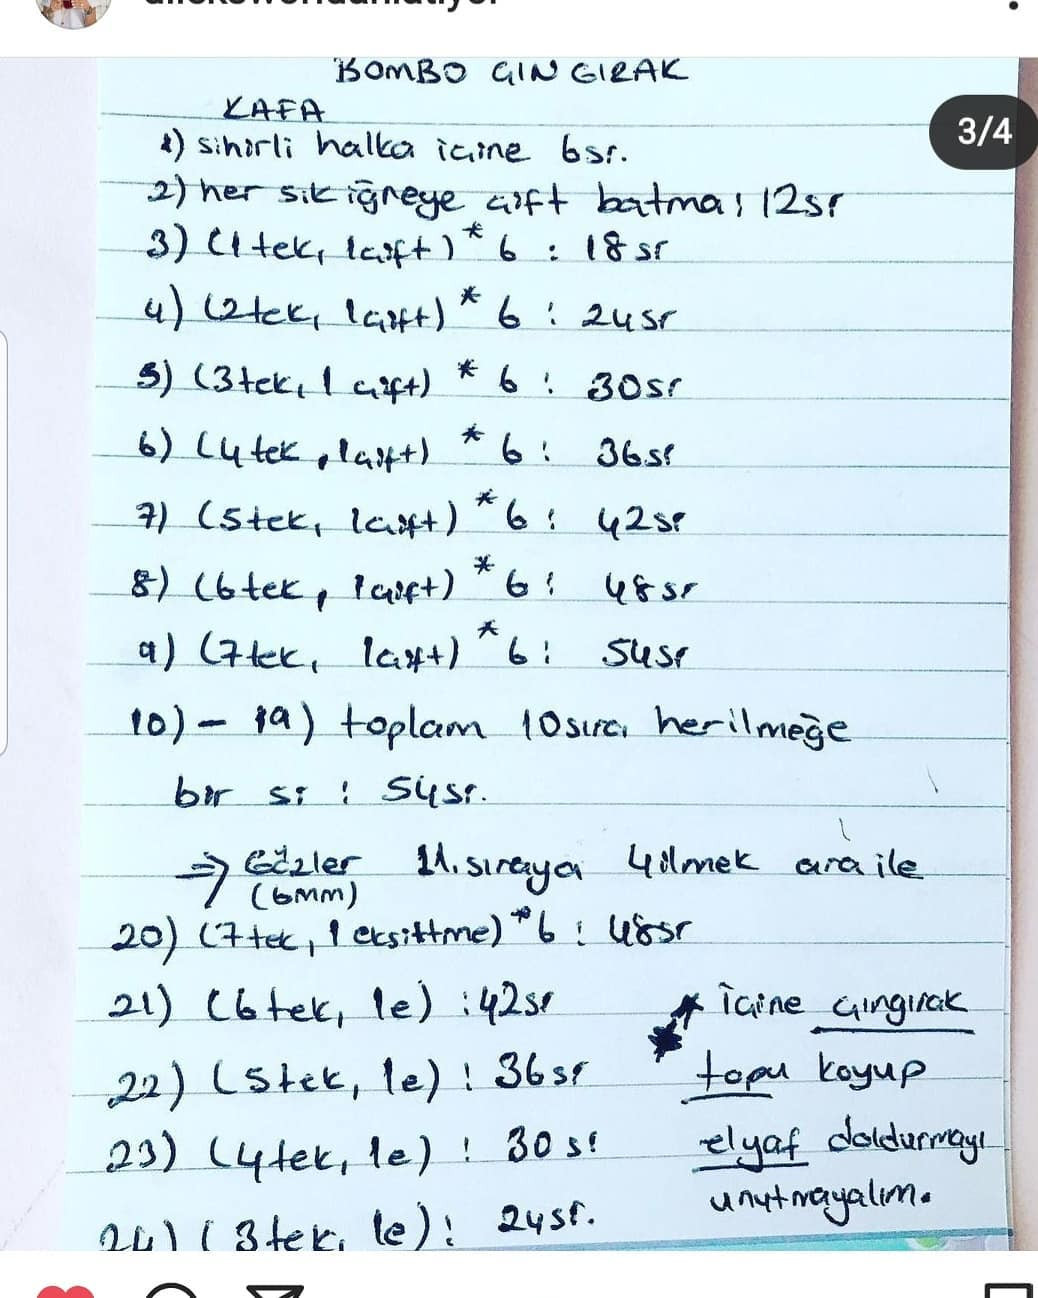 3/4
BOMBO GINGIRAK
KAFA
1) sihirli halka içine 6sr.
2) her sık iğneye çift batma: 12sr
3) (1 tek, 1çift) * 6 : 18 sr
4) (2tek, 1çift) * 6 : 24sr
5) (3tek, 1 çift) * 6 : 30sr
6) (4 tek, 1çift) * 6 : 36sr
7) (5tek, 1çift) * 6 : 42sr
8) (6tek, 1çift) * 6 : 48sr
9) (7tek, 1çift) * 6 : 54sr
10) - 19) toplam 10sıra her ilmeğe
bir si : 54sr.
⇒ Gözler 11.sıraya 4ilmek ara ile
(6mm)
20) (7tek, 1 eksiltme) * 6 : 48sr
21) (6 tek, 1e) : 42sr
* İçine çıngırak
22) (5tek, 1e) : 36sr
topu koyup
23) (4tek, 1e) : 30 sr
elyaf doldurmayı
unutmayalım.
24) (3tek, 1e) : 24sr.